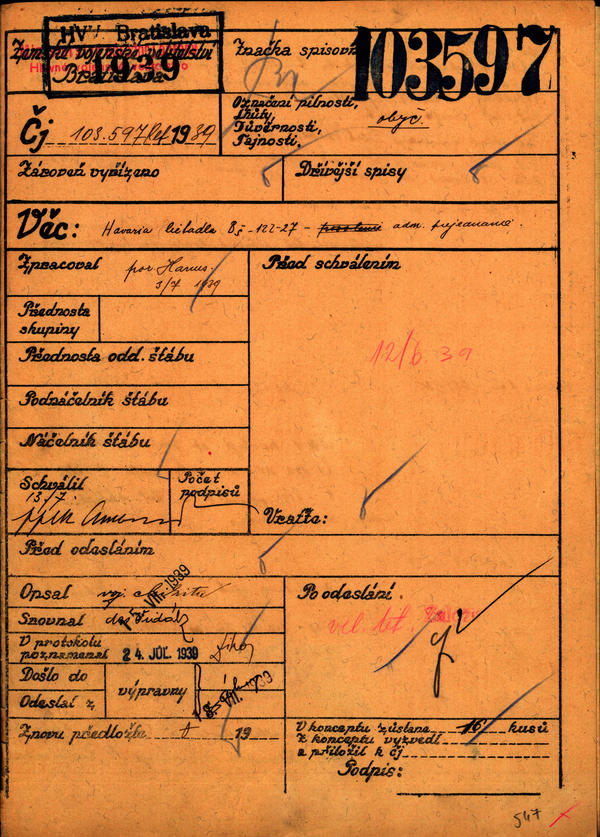 HV Bratislava
1939
Zemské vojenské velitelství
Bratislava
Značka spisovny
103597
Označení pilnosti,
lhůty,
Důvěrnosti,
Tajnosti.
obyč.
Čj 103.597 let 1939
Zároveň vyřízeno
Dřívější spisy
Věc: Havaria lietadla Bš-122-27 - adm. prejednanie.
Zpracoval por. Hanus
3/7 1939
Před schválením
Přednosta
skupiny
12/6. 39
Přednosta odd. štábu
Podnáčelník štábu
Náčelník štábu
Schválil
13/7.
Počet
podpisů
Vraťte:
Před odesláním
Opsal voj.
Srovnal
VIII. 1939
Po odeslání.
vel. let.
V protokolu
poznamenal 24. JÚL. 1939
Došlo do
Odeslal z
výpravny
Znovu předložte 19
V konceptu zůstane 16 kusů
z konceptu vyzvedl
a přiložil k čj
Podpis:
547